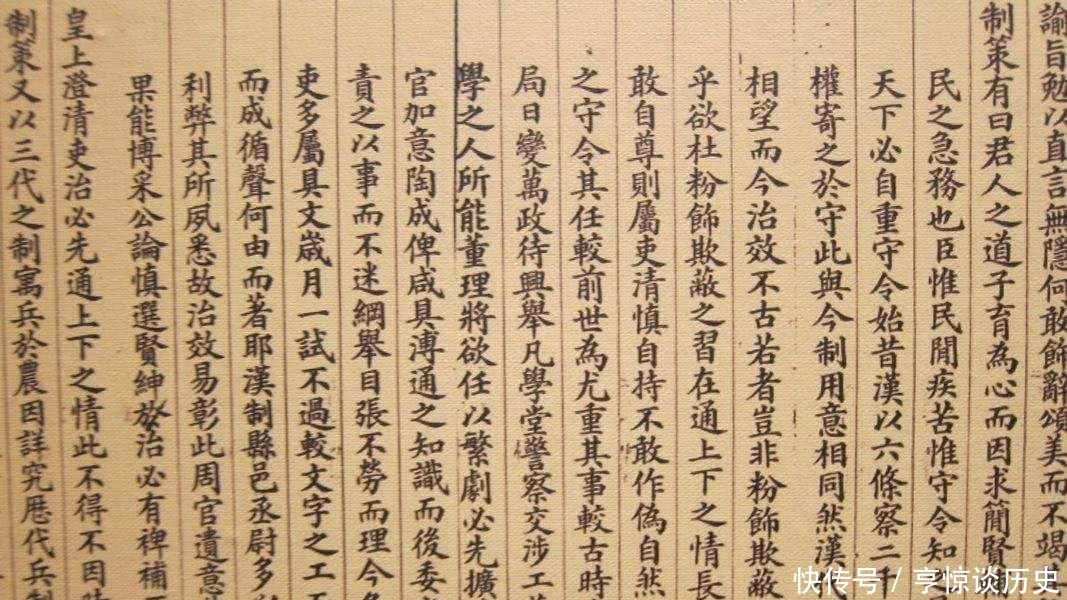 諭旨勉以直言無隱何敢飾辭頌美而不竭
制策有曰君人之道子育為心而因求簡賢
民之急務也臣惟民間疾苦惟守令知
天下必自重守令始昔漢以六條察二千
權寄之於守此與今制用意相同然漢
相望而今治效不古若者豈非粉飾欺蔽
乎欲杜粉飾欺蔽之習在通上下之情長
敢自尊則屬吏清慎自持不敢作偽自然
之守令其任較前世為尤重其事較古時
局日變萬政待興舉凡學堂警察交涉工
學之人所能董理將欲任以繁劇必先擴
官加意陶成俾咸具溥通之知識而後委
責之以事而不迷綱舉目張不勞而理今
吏多屬具文歲月一試不過較文字之工
而成循聲何由而著耶漢制縣邑丞尉多
利弊其所夙悉故治效易彰此周官遺意
果能博采公論慎選賢紳於治必有裨補
皇上澄清吏治必先通上下之情此不得不因時
制策又以三代之制寓兵於農因詳究歷代兵制
快传号 / 亨惊谈历史